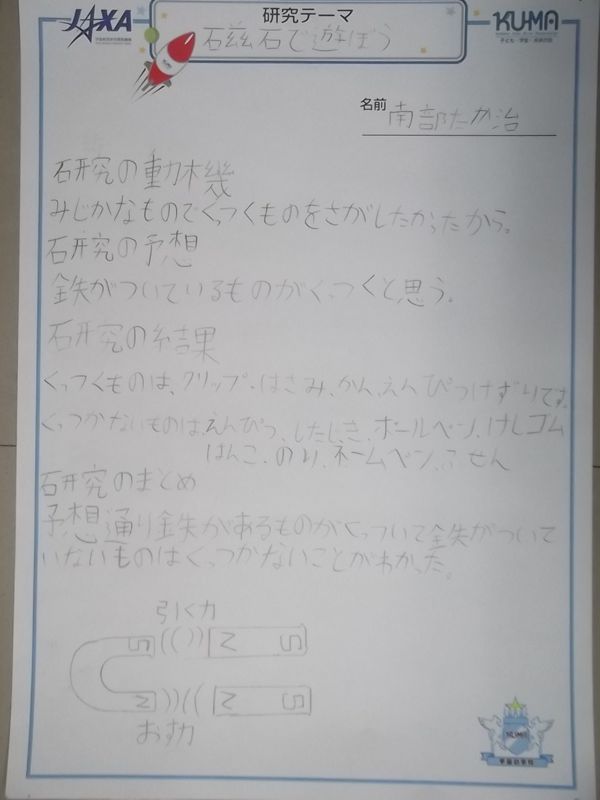 JAXA
研究テーマ
KUMA
磁石で遊ぼう
名前 南部たか治
研究の動機
みじかなものでくっつくものをさがしたかったから。
研究の予想
鉄がついているものがくっつくと思う。
研究の結果
くっつくものは、クリップ・はさみ、かん、えんぴつけずりです。
くっつかないものは、えんぴつ、したじき、ボールペン、けしゴム
はんこ、のり、ネームペン、ふせん
研究のまとめ
予想通り鉄があるものがくっついて鉄がついて
いないものはくっつかないことがわかった。
引く力
S N S
N N S
おす力
KUMA